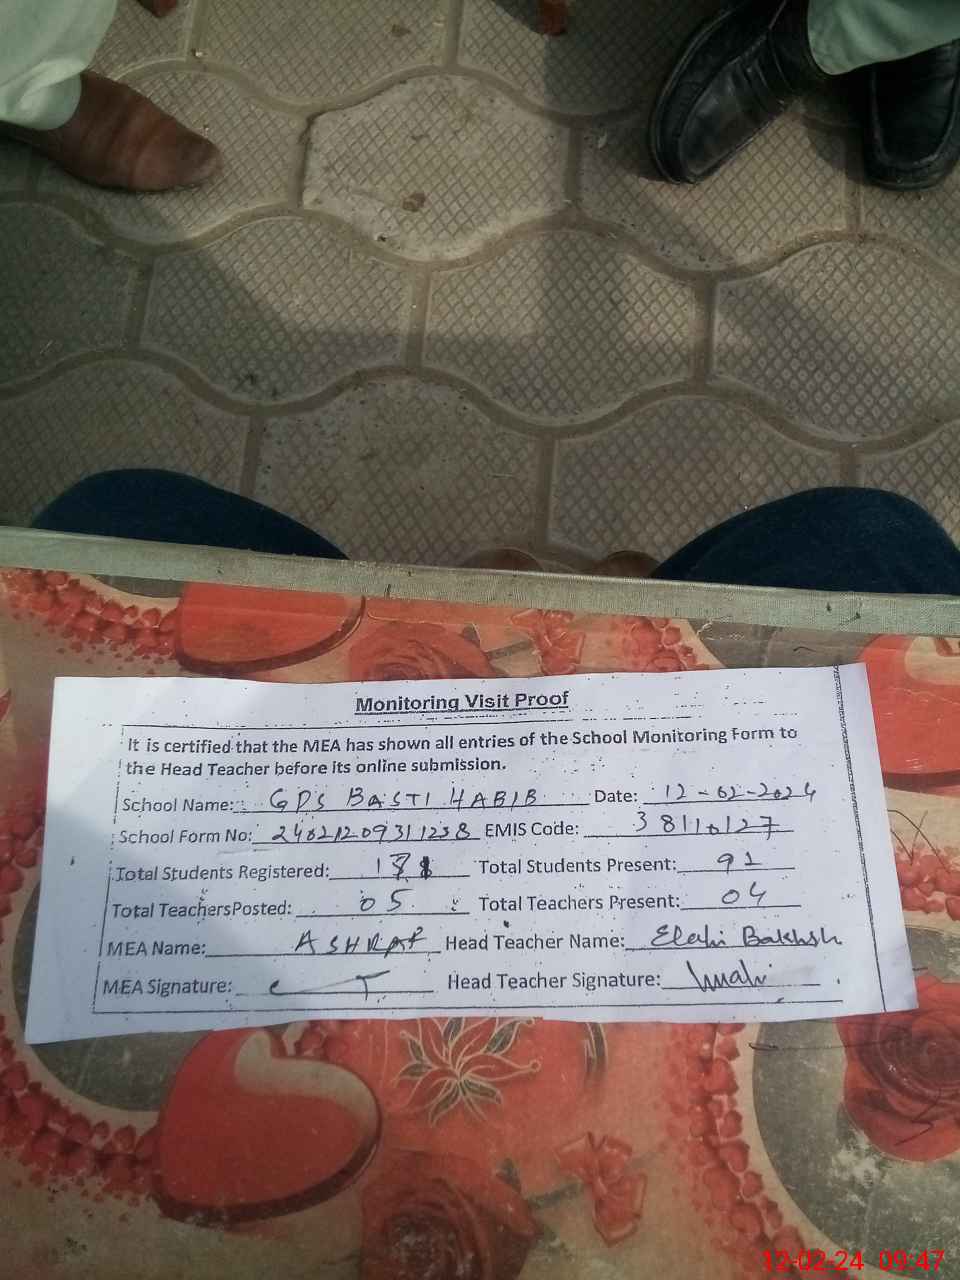 Monitoring Visit Proof
It is certified that the MEA has shown all entries of the School Monitoring Form to
the Head Teacher before its online submission.
School Name: GPS BASTI HABIB Date: 12-02-2024
School Form No: EMIS Code: 38110127
Total Students Registered: Total Students Present: 91
Total Teachers Posted: 05 Total Teachers Present: 04
MEA Name: ASHRAF Head Teacher Name: Elahi Bakhsh
MEA Signature: Head Teacher Signature:
12-02-24 09:47